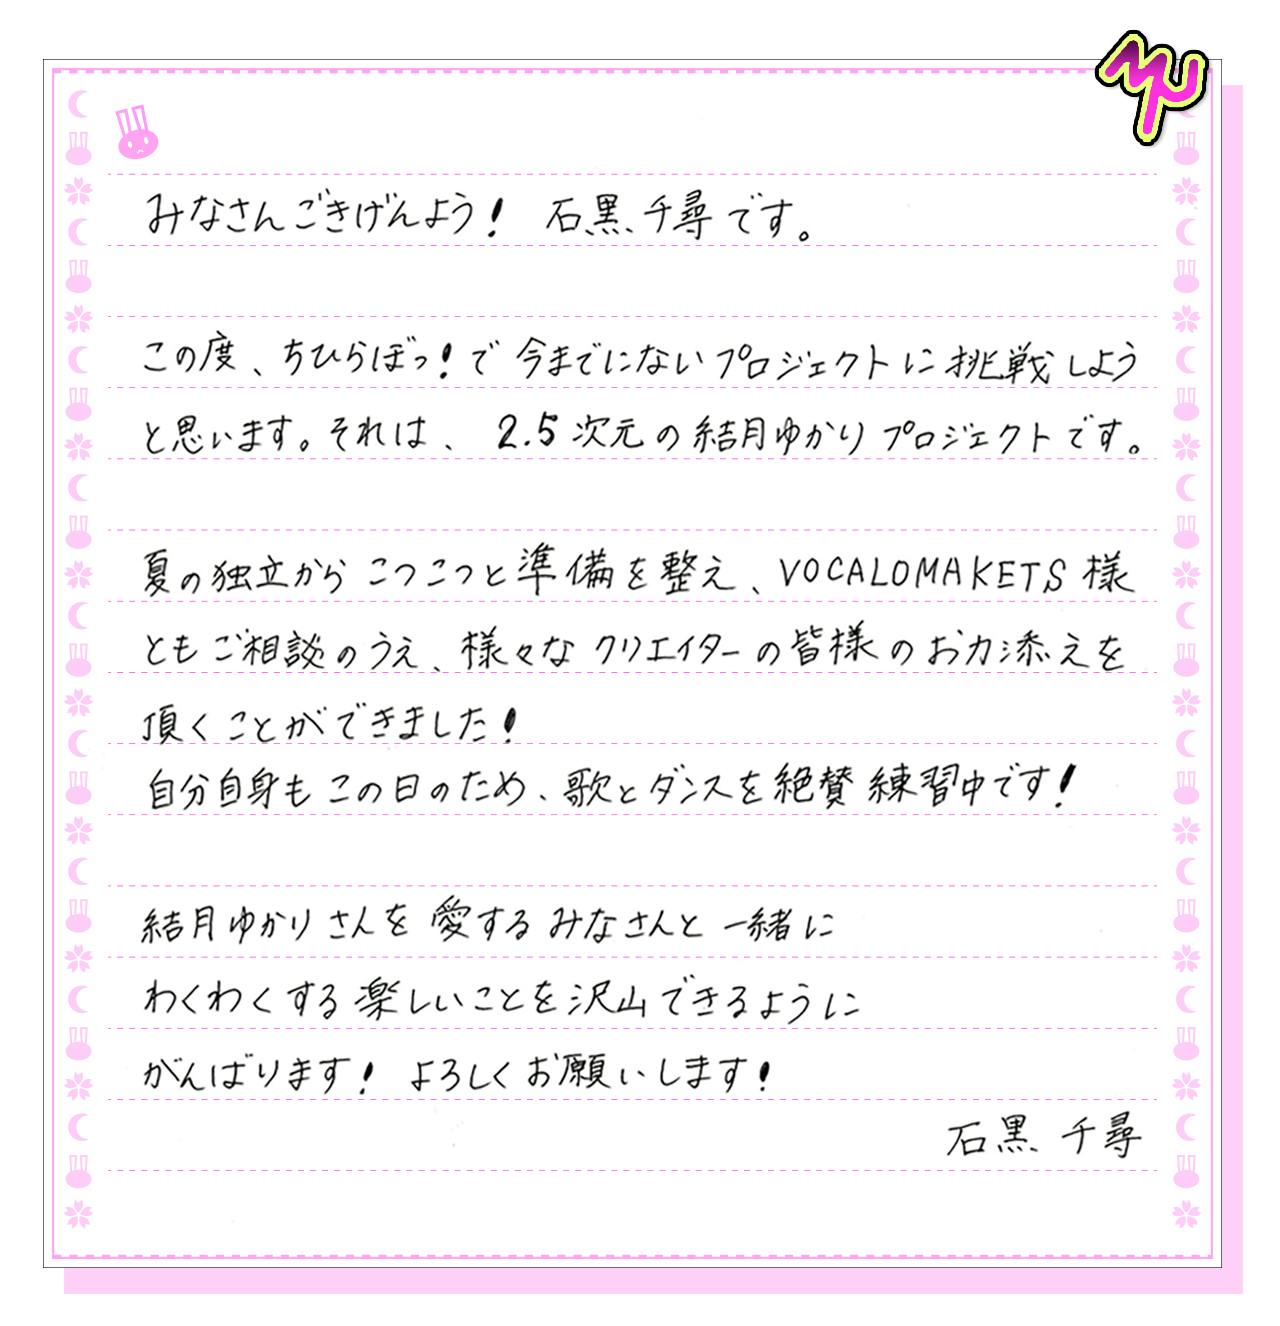 みなさんごきげんよう! 石黒千尋です。
この度、ちひらぼっ!で今までにないプロジェクトに挑戦しよう
と思います。それは、2.5次元の結月ゆかりプロジェクトです。
夏の独立からこつこつと準備を整え、VOCALOMAKETS様
ともご相談のうえ、様々なクリエイターの皆様のお力添えを
頂くことができました!
自分自身もこの日のため、歌とダンスを絶賛練習中です!
結月ゆかりさんを愛するみなさんと一緒に
わくわくする楽しいことを沢山できるように
がんばります! よろしくお願いします!
石黒 千尋